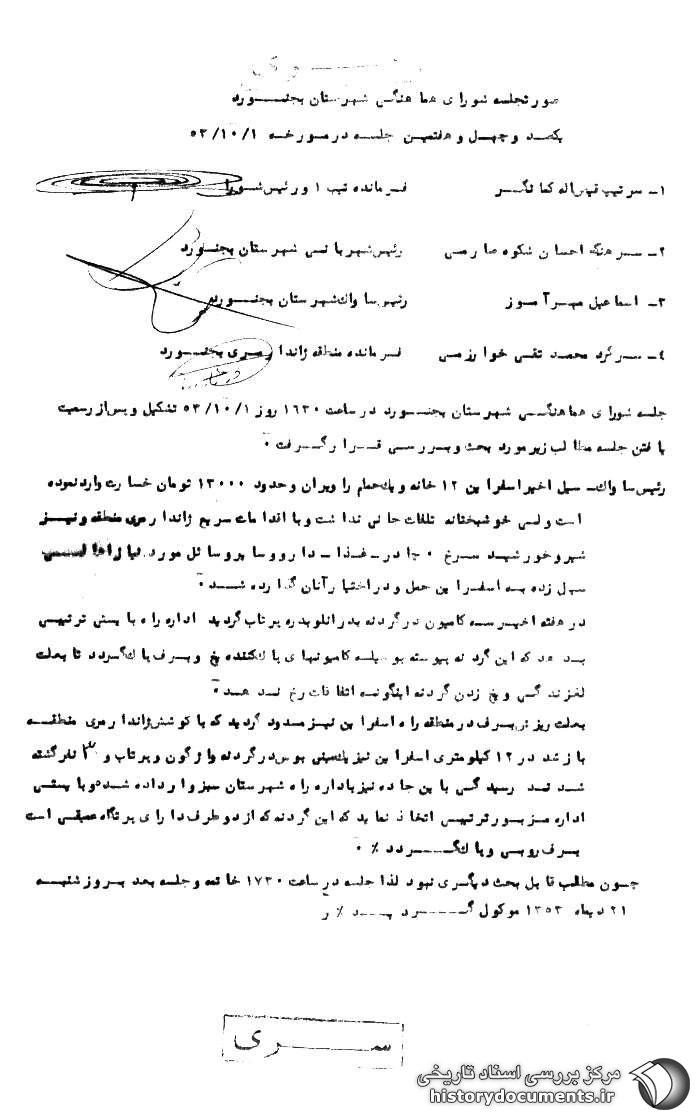 سری
صورتجلسه شورای هماهنگی شهرستان بجنورد
یکصد و چهل و هفتمین جلسه در مورخه ۵۳/۱۰/۱
۱- سرتیپ قیس‌اله کمانگر فرمانده تیپ ۱ و رئیس شورا
۲- سرهنگ احسان شکوه صارمی رئیس شهربانی شهرستان بجنورد
۳- اسماعیل مهرآموز رئیس ساواک شهرستان بجنورد
۴- سرگرد محمد تقی خوارزمی فرمانده منطقه ژاندارمری بجنورد
جلسه شورای هماهنگی شهرستان بجنورد در ساعت ۱۶۳۰ روز ۵۳/۱۰/۱ تشکیل و پس از رسمیت
یافتن جلسه مطالب زیر مورد بحث و بررسی قرار گرفت ۰
رئیس ساواک- سیل اخیر اسفراین ۱۲ خانه و یک حمام را ویران و حدود ۱۳۰۰۰ تومان خسارت وارد نموده
است ولی خوشبختانه تلفات جانی نداشت و با اقدامات سریع ژاندارمری منطقه و نیز
شیر و خورشید سرخ ۰ چادر- غذا- دارو و سایر وسائل مورد نیاز اهالی
سیل زده به اسفراین حمل و در اختیار آنان گذارده شد ۰
در هفته اخیر سه کامیون در گردنه بدرانلو بدره پرتاب گردید اداره راه بایستی ترتیبی
بدهد که این گردنه پیوسته بوسیله کامیونهای پاک‌کننده یخ و برف پاک گردد تا بعلت
لغزندگی و یخ زدن گردنه اینگونه اتفاقات رخ ندهد ۰
بعلت ریزش برف در منطقه راه اسفراین نیز مسدود گردید که با کوشش ژاندارمری منطقه
باز شد در ۱۲ کیلومتری اسفراین نیز یک مینی بوس در گردنه واژگون و پرتاب و ۳ نفر کشته
شدند رسیدگی باین جاده نیز باداره راه شهرستان سبزوار داده شده و بایستی
اداره مزبور ترتیبی اتخاذ نماید که این گردنه که از دو طرف دارای پرتگاه عمیقی است
برف روبی و پاک گردد ٪ ۰
چون مطالب قابل بحث دیگری نبود لذا جلسه در ساعت ۱۷۳۰ خاتمه و جلسه بعد بروز شنبه
۲۱ دیماه ۱۳۵۳ موکول گردید ٪ ر
سری
مرکز بررسی اسناد تاریخی
historydocuments.ir